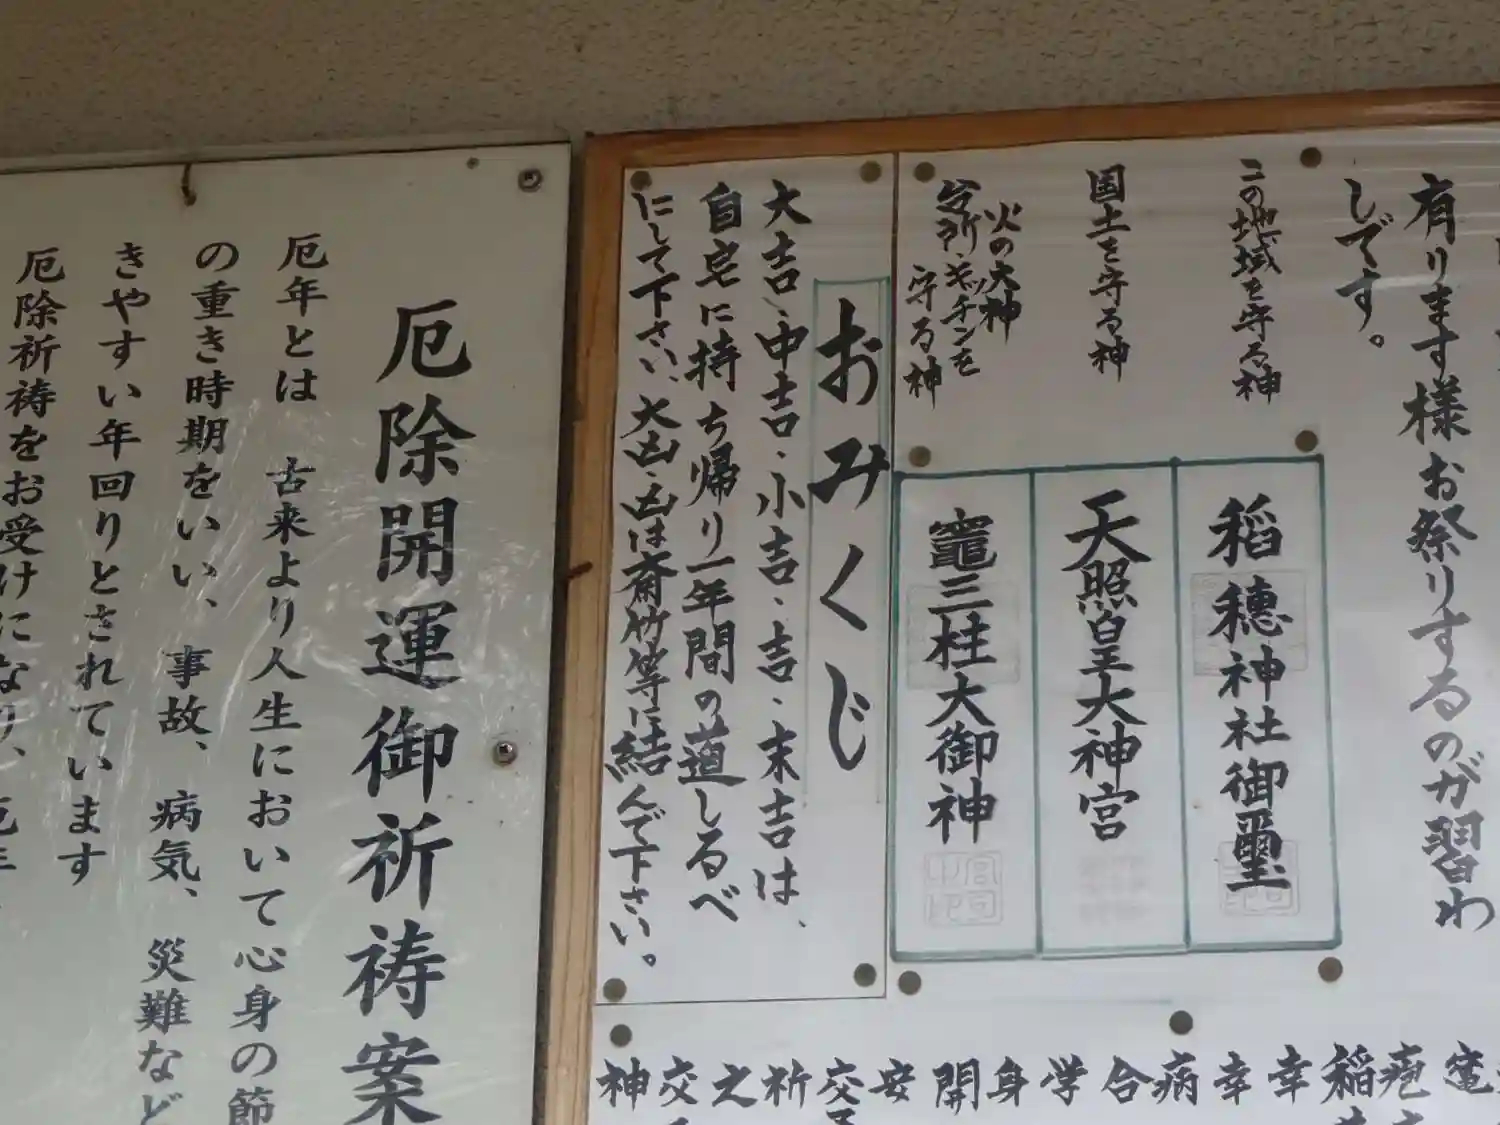 有ります様お祭りするのが習わ
しです。
この地域を守る神
国土を守る神
火の大神
台所・キッチンを
守る神
稲穂神社御璽
天照皇大神宮
竈三柱大御神
おみくじ
大吉・中吉・小吉・吉・末吉は、
自宅に持ち帰り一年間の道しるべ
にして下さい、大凶・凶は斎竹等に結んで下さい。
竈
疱
稲
幸
幸
病
合
学
身
開
安
交
祈
之
交
神
厄除開運御祈祷案
厄年とは 古来より人生において心身の節
の重き時期をいい、事故、病気、災難など
きやすい年回りとされています
厄除祈祷をお受けになり、厄年